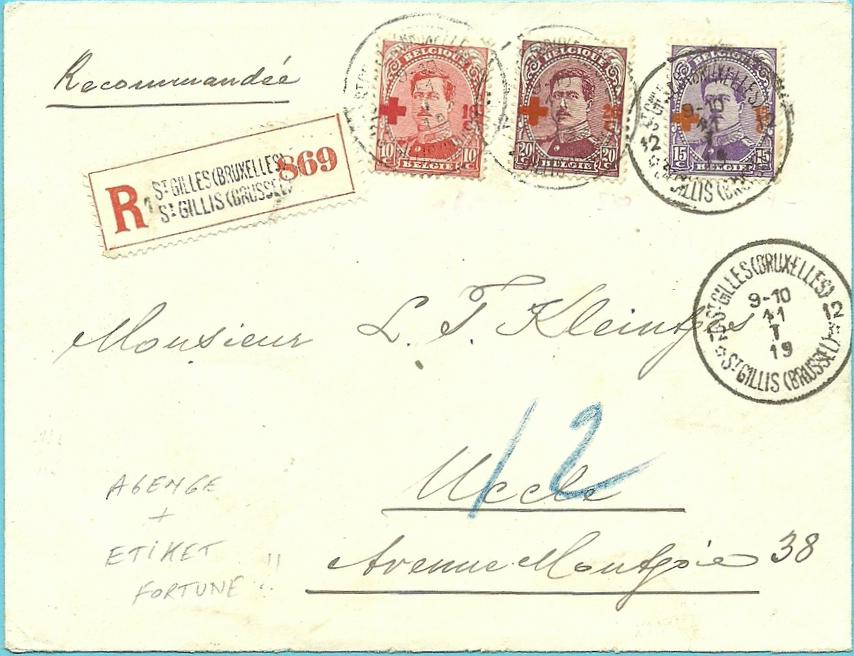 Recommandée
BELGIQUE
10 10
BELGIË
BELGIQUE
20 20
20
BELGIË
BELGIQUE
15 15
15
BELGIË
R
ST GILLES (BRUXELLES)
ST GILLIS (BRUSSEL)
869
ST GILLES (BRUXELLES)
9-10
11
I
19
ST GILLIS (BRUSSEL)
Monsieur L. F. Kleintjes
12
Uccle
Avenue Montjoie 38
AGENGE
+
ETIKET
FORTUNE !!